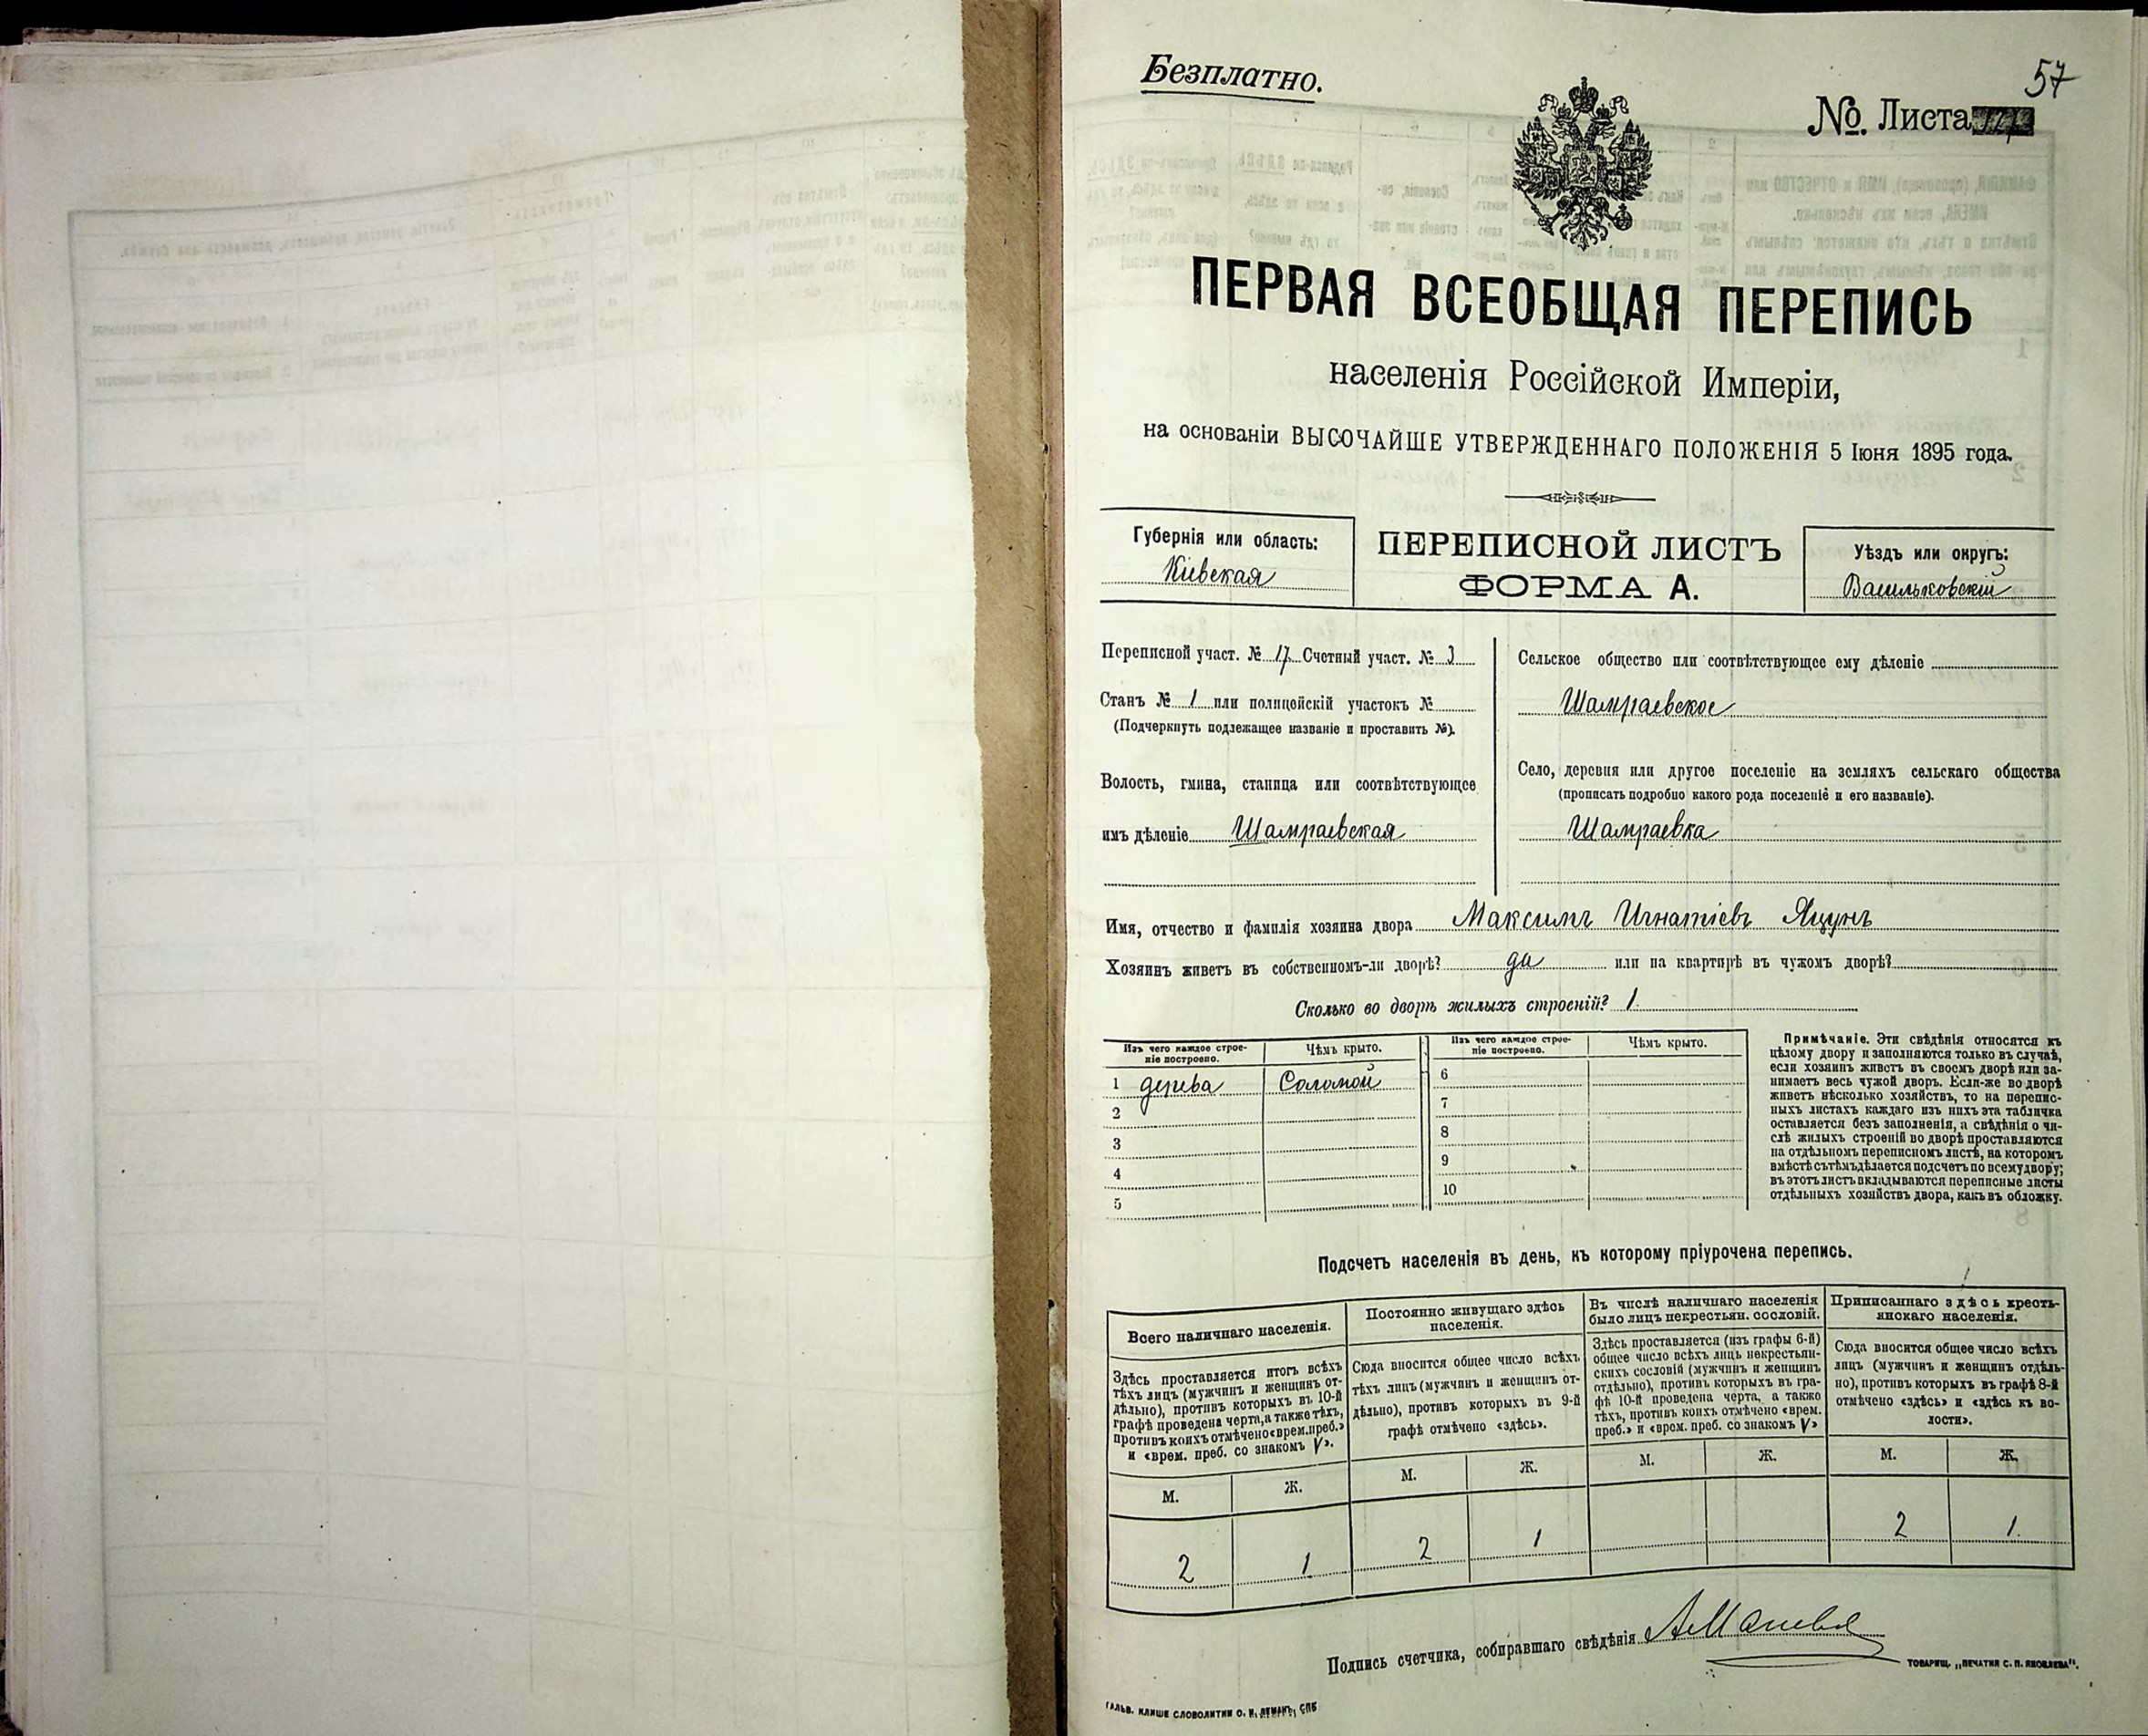 Безплатно.
57
№. Листа
ПЕРВАЯ ВСЕОБЩАЯ ПЕРЕПИСЬ
населенія Россійской Имперіи,
на основаніи ВЫСОЧАЙШЕ УТВЕРЖДЕННАГО ПОЛОЖЕНІЯ 5 Іюня 1895 года.
Губернія или область:
Кіевская
ПЕРЕПИСНОЙ ЛИСТЪ
ФОРМА А.
Уѣздъ или округъ:
Васильковскій
Переписной участ. № 17 Счетный участ. № 3
Станъ № 1 или полицейскій участокъ №
(Подчеркнуть подлежащее названіе и проставить №).
Волость, гмина, станица или соотвѣтствующее
имъ дѣленіе Шамраевская
Сельское общество или соотвѣтствующее ему дѣленіе
Шамраевское
Село, деревня или другое поселеніе на земляхъ сельскаго общества
(прописать подробно какого рода поселеніе и его названіе).
Шамраевка
Имя, отчество и фамилія хозяина двора Максимъ Игнатіевъ Яцунъ
Хозяинъ живетъ въ собственномъ-ли дворѣ? да или на квартирѣ въ чужомъ дворѣ?
Сколько во дворѣ жилыхъ строеній? 1
Изъ чего каждое строе-
ніе построено.
Чѣмъ крыто.
Изъ чего каждое строе-
ніе построено.
Чѣмъ крыто.
1 дерева Соломой
2
3
4
5
6
7
8
9
10
Примѣчаніе. Эти свѣдѣнія относятся къ
цѣлому двору и заполняются только въ случаѣ,
если хозяинъ живетъ въ своемъ дворѣ или за-
нимаетъ весь чужой дворъ. Если-же во дворѣ
живетъ нѣсколько хозяйствъ, то на перепис-
ныхъ листахъ каждаго изъ нихъ эта табличка
оставляется безъ заполненія, а свѣдѣнія о чи-
слѣ жилыхъ строеній во дворѣ проставляются
на отдѣльномъ переписномъ листѣ, на которомъ
вмѣстѣ съ тѣмъ дѣлается подсчетъ по всему двору;
въ этотъ листъ вкладываются переписные листы
отдѣльныхъ хозяйствъ двора, какъ въ обложку.
Подсчетъ населенія въ день, къ которому пріурочена перепись.
Всего наличнаго населенія.
Здѣсь проставляется итогъ всѣхъ
тѣхъ лицъ (мужчинъ и женщинъ от-
дѣльно), противъ которыхъ въ 10-й
графѣ проведена черта, а также тѣхъ,
противъ коихъ отмѣчено «врем. преб.»
и «врем. преб. со знакомъ V».
М. Ж.
2 1
Постоянно живущаго здѣсь
населенія.
Сюда вносится общее число всѣхъ
тѣхъ лицъ (мужчинъ и женщинъ от-
дѣльно), противъ которыхъ въ 9-й
графѣ отмѣчено «здѣсь».
М. Ж.
2 1
Въ числѣ наличнаго населенія
было лицъ некрестьян. сословій.
Здѣсь проставляется (изъ графы 6-й)
общее число всѣхъ лицъ некрестьян-
скихъ сословій (мужчинъ и женщинъ
отдѣльно), противъ которыхъ въ гра-
фѣ 10-й проведена черта, а также
тѣхъ, противъ коихъ отмѣчено «врем.
преб.» и «врем. преб. со знакомъ V»
М. Ж.
Приписаннаго здѣсь кресть-
янскаго населенія.
Сюда вносится общее число всѣхъ
лицъ (мужчинъ и женщинъ отдѣль-
но), противъ которыхъ въ графѣ 8-й
отмѣчено «здѣсь» и «здѣсь къ во-
лости».
М. Ж.
2 1
Подпись счетчика, собиравшаго свѣдѣнія
ТОВАРИЩ. „ПЕЧАТНЯ С. П. ЯКОВЛЕВА".
ГАЛЬВ. КЛИШЕ СЛОВОЛИТНИ О. И. ЛЕМАНЪ, СПБ